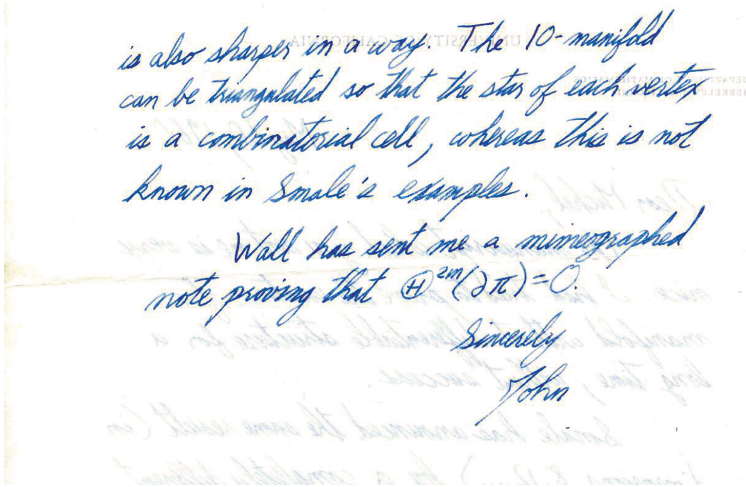 is also sharper in a way. The 10-manifold
can be triangulated so that the star of each vertex
is a combinatorial cell, whereas this is not
known in Smale's examples.
Wall has sent me a mimeographed
note proving that Ⓗ²ᵐ(∂π)=0.
Sincerely
John